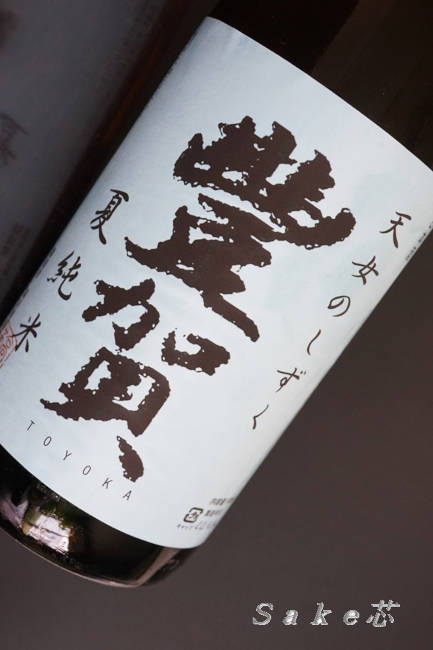 天女のしずく
豐賀
夏純米
TOYOKA
Sake芯